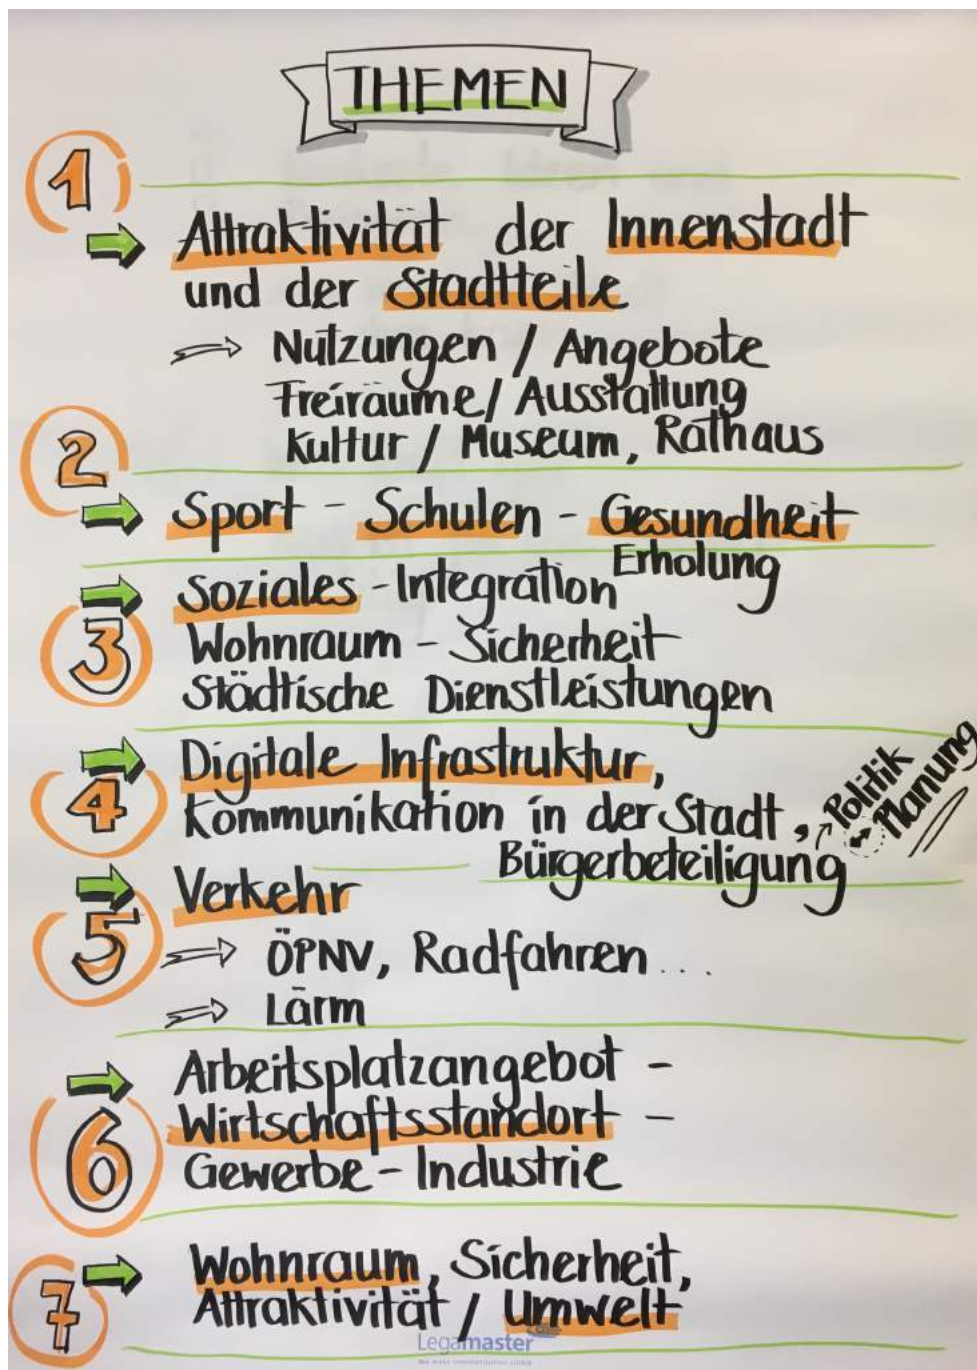 THEMEN
1
Attraktivität der Innenstadt
und der Stadtteile
Nutzungen / Angebote
Freiräume / Ausstattung
Kultur / Museum, Rathaus
2
Sport - Schulen - Gesundheit
Erholung
3
Soziales - Integration
Wohnraum - Sicherheit
Städtische Dienstleistungen
4
Digitale Infrastruktur,
Kommunikation in der Stadt,
Bürgerbeteiligung
Politik
Planung
5
Verkehr
ÖPNV, Radfahren...
Lärm
6
Arbeitsplatzangebot -
Wirtschaftsstandort -
Gewerbe - Industrie
7
Wohnraum, Sicherheit,
Attraktivität / Umwelt
Legamaster